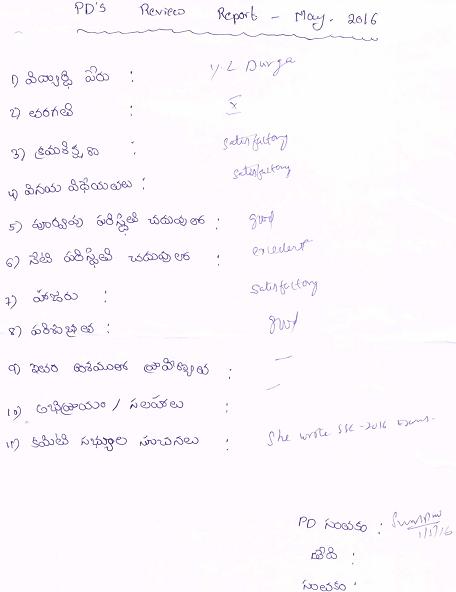 PD's Review Report - May. 2016
1) విద్యార్థి పేరు : Y. L Durga
2) తరగతి : X
3) క్రమశిక్షణ : Satisfactory
4) వినయ విధేయతలు : Satisfactory
5) పూర్వపు పరిస్థితి చదువులో : good
6) నేటి పరిస్థితి చదువులో : excellent
7) హాజరు : Satisfactory
8) పరిశుభ్రత : good
9) ఇతర అంశములలో ప్రావీణ్యత : —
10) అభిప్రాయం / సలహాలు : —
11) కమిటి సభ్యుల సూచనలు : She wrote SSC - 2016 exams.
PD సంతకం :
తేది :
సంతకం :